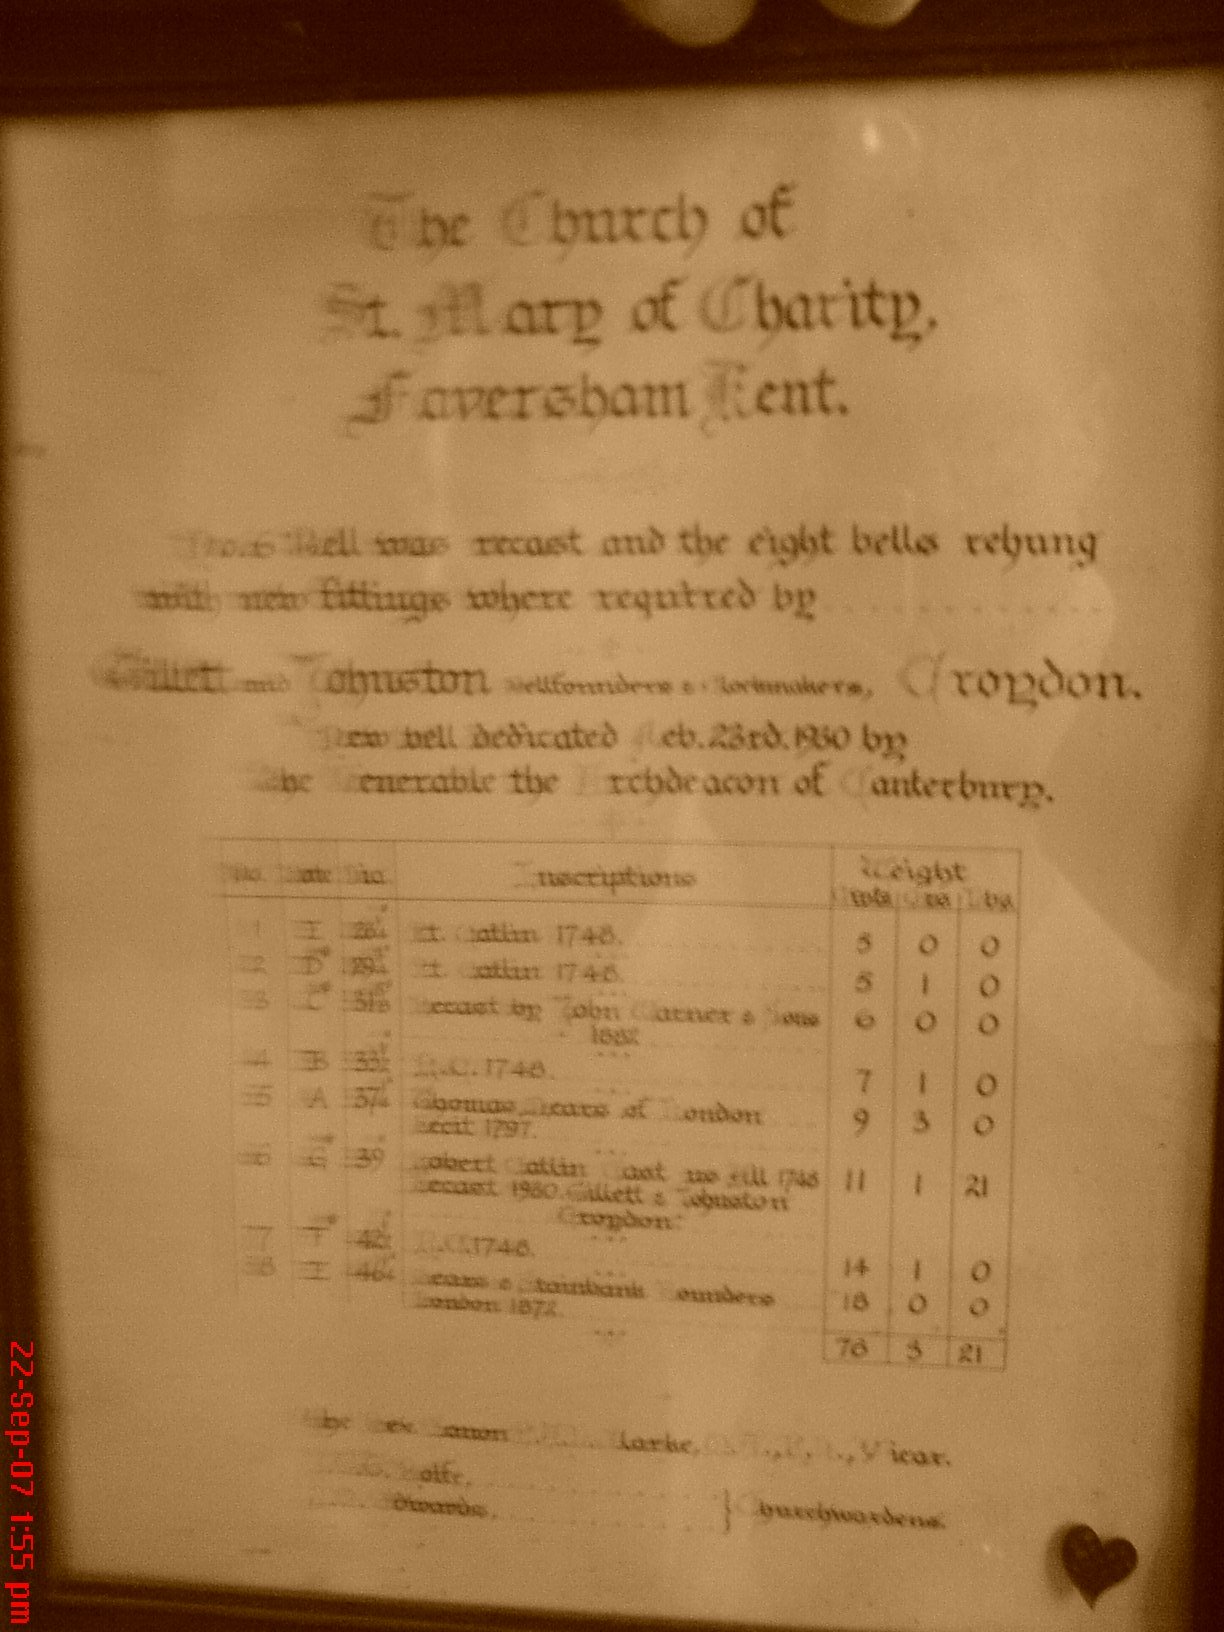 The Church of
St. Mary of Charity,
Faversham Kent.
Bell was recast and the eight bells rehung
with new fittings where required by
Gillett and Johnston Bellfounders & Clockmakers, Croydon.
New bell dedicated Feb. 23rd. 1930 by
The Venerable the Archdeacon of Canterbury.
No. Note Dia. Inscriptions Weight
Cwts Qrs Lbs
1 Catlin 1748. 5 0 0
2 D# Catlin 1748. 5 1 0
3 C# Recast by John Warner & Sons 6 0 0
1882
4 B R.C. 1748. 7 1 0
5 A Thomas Mears of London 9 3 0
fecit 1797.
6 G# 39 Robert Catlin Cast us all 1748 11 1 21
Recast 1930. Gillett & Johnston
Croydon.
7 F# R.C. 1748. 14 1 0
8 E Mears & Stainbank Founders 18 0 0
London 1872.
76 3 21
The Rev. Canon Clarke, Vicar.
Edwards, } Churchwardens.
22-Sep-07 1:55 pm